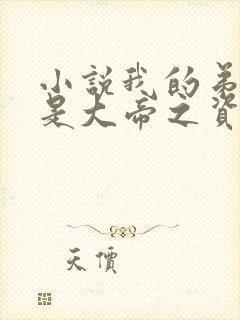 小說我的弟
是大帝之資
天價